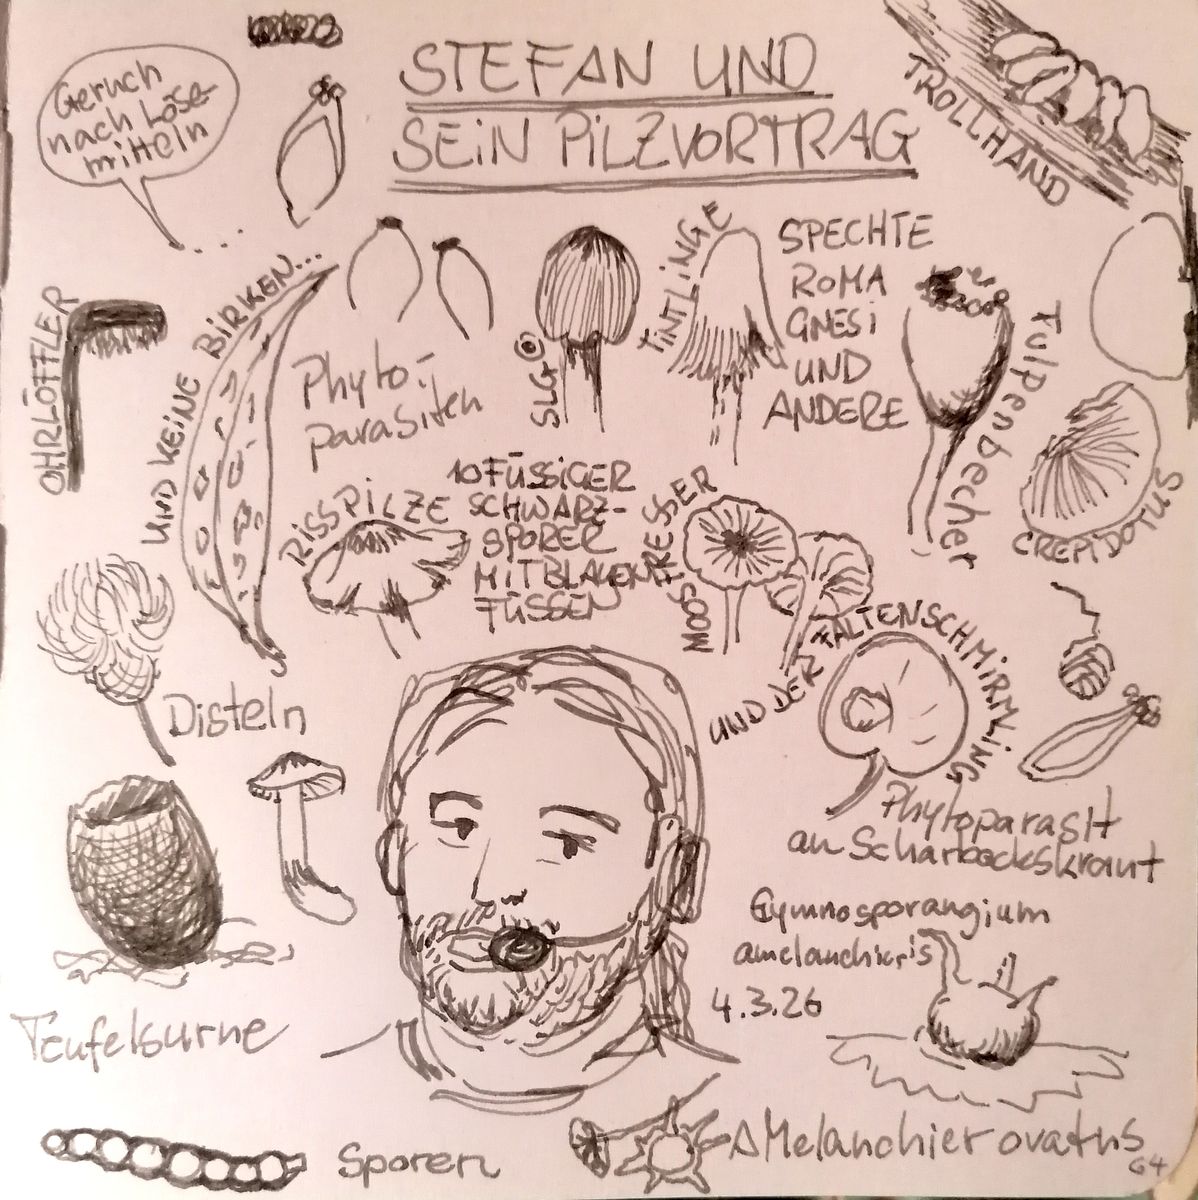 STEFAN UND
SEIN PILZVORTRAG
Geruch
nach Löse-
mitteln
TROLLHAND
OHRLÖFFLER
UND KEINE BIRKEN...
Phyto-
parasiten
SLG
TINTLINGE
SPECHTE
ROMA
GNESI
UND
ANDERE
Tulpenbecher
CREPIDOTUS
RISSPILZE
10FÜSSIGER
SCHWARZ-
SPORER
MIT BLAUEN
FÜSSEN
MOOSFRESSER
UND DER FALTENSCHMIRMLING
Disteln
Phytoparasit
an Scharbockskraut
Gymnosporangium
amelanchieris
4.3.26
Teufelsurne
Sporen
AMelanchier ovatus
G4